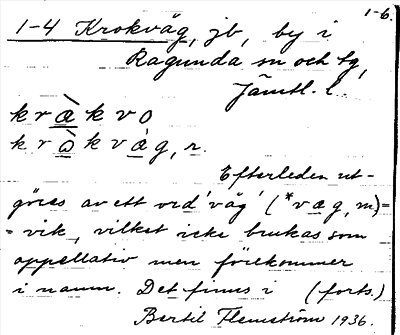 1-6.
1-4 Krokvåg, jb, by i
Ragunda sn och tg,
Jämtl. l.
kræ̀kvo
krɔ̀kvág, r.
Efterleden ut-
göres av ett ord 'våg' (*væg, m)=
= vik, vilket icke brukas som
appellativ men förekommer
i namn. Det finns i (forts.)
Bertil Flemström 1936.